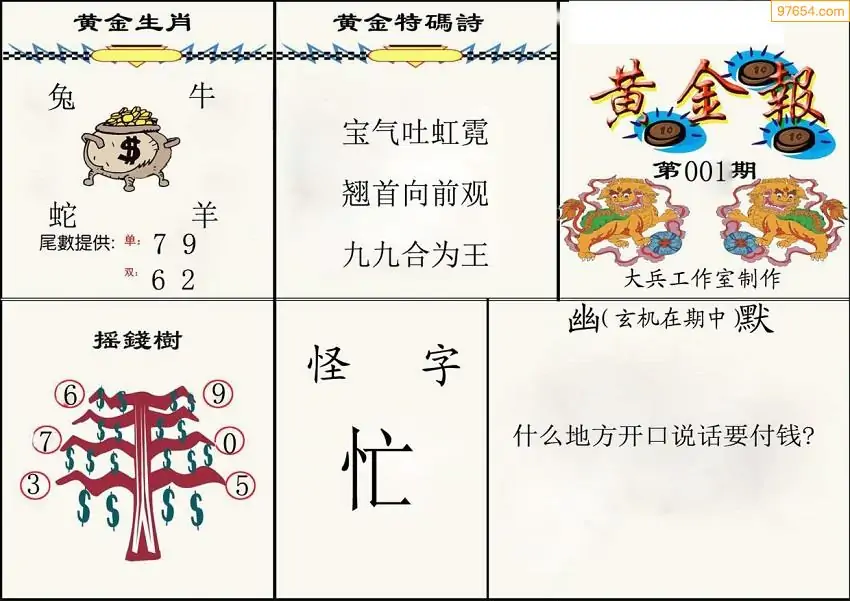 97654.com
黄金生肖
兔 牛
$
蛇 羊
尾數提供: 单: 7 9
双: 6 2
黄金特碼詩
宝气吐虹霓
翘首向前观
九九合为王
黄金報
10
10
10
第001期
大兵工作室制作
摇錢樹
6 9
7 0
3 5
怪 字
忙
幽(玄机在期中)默
什么地方开口说话要付钱?